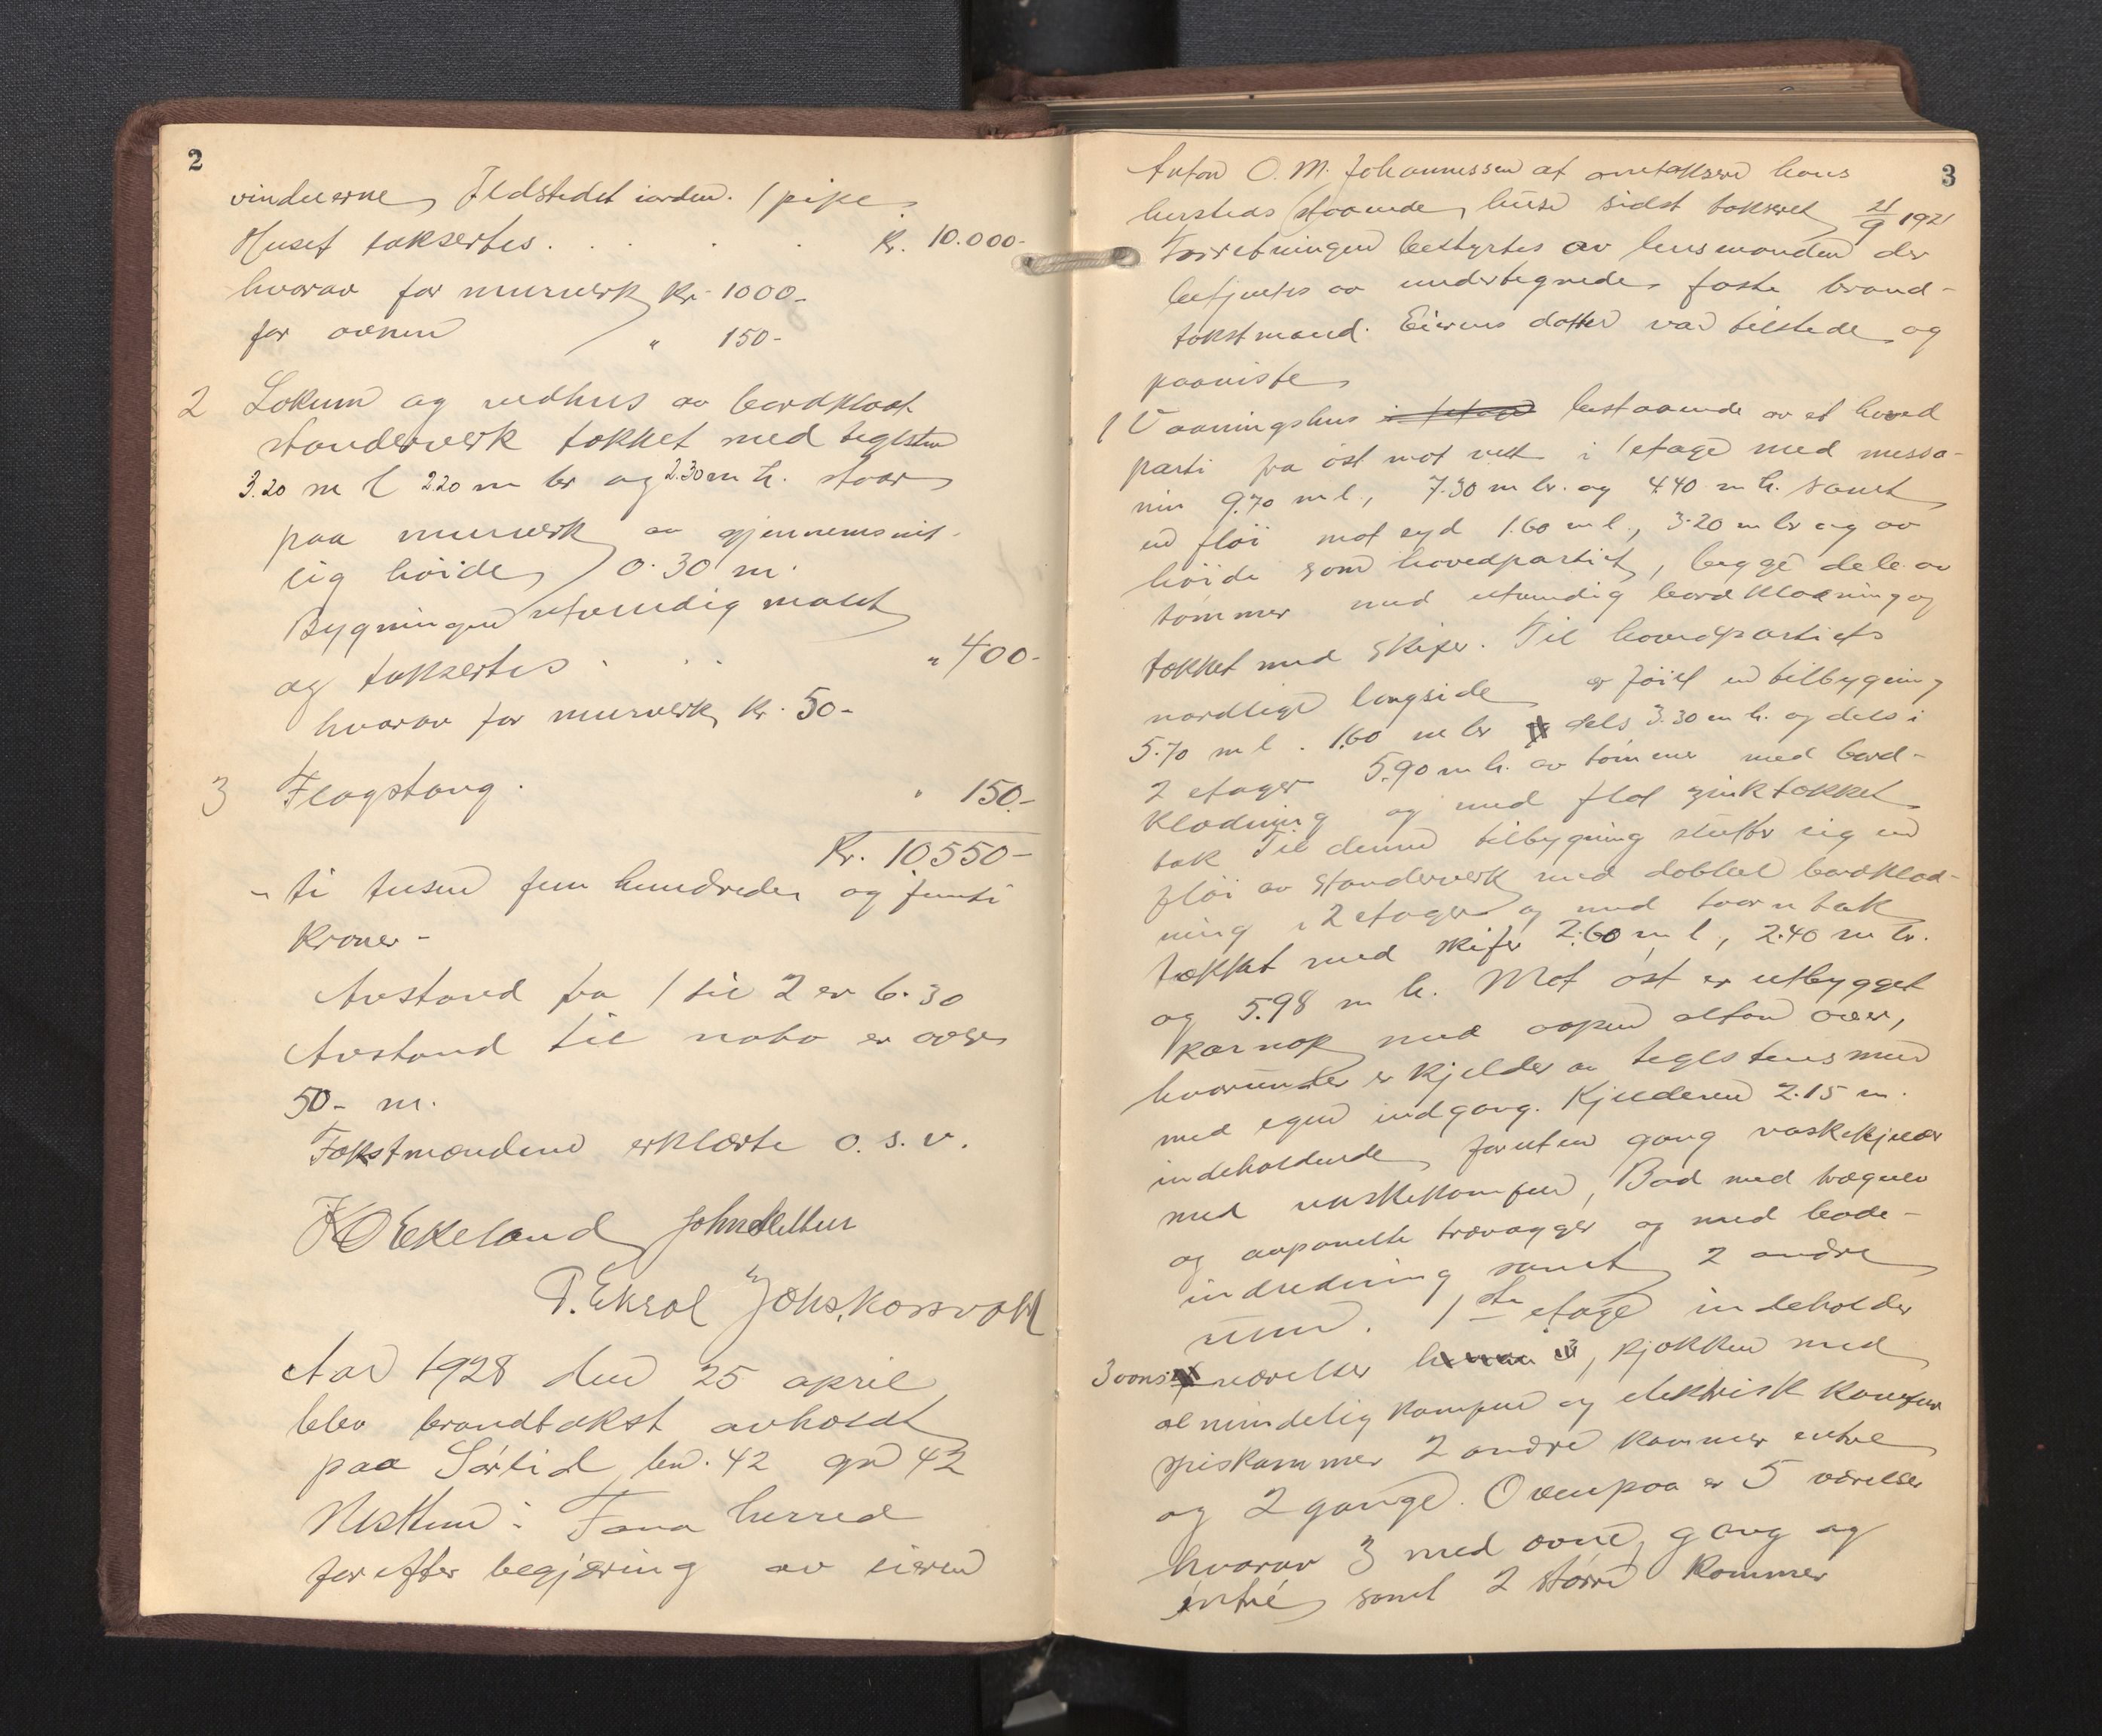 2
vinduerne, Ildstedet iorden. 1 pipe
Huset taksertes. . . . . Kr. 10.000-
hvorav for murverk Kr. 1000-
for ovnen " 150-
2 Lokum og vedhus av bordklædt
standerverk tækket med teglsten
3.20 m l 2.20 m br og 2.30 m h. staar
paa murverk av gjennemsnit-
lig høide 0.30 m.
Bygningen utvendig malet
og taksertes . . . " 400-
hvorav for murverk Kr. 50-
3 Flagstang. " 150.-
Kr. 10550-
- ti tusen fem hundrede og femti
Kroner -
Avstand fra 1 til 2 er 6.30
Avstand til nabo er over
50- m.
Takstmændene erklærte o. s. v.
K O Ekeland John Hellen
P. Ekrol Johs. Korsvold
Aar 1928 den 25 april
blev brandtakst avholdt
paa Sørlid bn. 42 gn 42
Nesttun i Fana herred
for efter begjæring av eieren
3
Anton O. M. Johannessen at omtaksere hans
hersteds staaende huse sidst takseret 21/9 1921
Forretningen bestyrtes av lensmanden der
betjentes av undertegnede faste brand-
takstmænd. Eierens datter var tilstede og
paaviste
1 Vaaningshus bestaaende av et hoved
parti fra øst mot vest i 1 etage med messa-
nin 9.70 m l., 7.30 m br. og 4.40 m h. samt
en fløi mot syd 1.60 m l., 3.20 m br og av
høide som hovedpartiet, begge dele av
tømmer med utvendig bordklædning og
tækket med skifer. Til hovedpartiets
nordlige langside er føiet en tilbygning
5.70 m l. 1.60 m br dels 3.30 m h. og dels i
2 etager 5.90 m h. av tømmer med bord-
klædning og med flat zinktækket
tak Til denne tilbygning støtter sig en
fløi av standerverk med dobbel bordklæd-
ning i 2 etager og med taarntak
tækket med skifer 2.60 m l, 2.40 m br.
og 5.98 m h. Mot øst er utbygget
karnap med aapen altan over,
hvorunder er kjelder av teglstensmur
med egen indgang. Kjelderen 2.15 m.
indeholdende foruten gang vaskekjelder
med vaskekomfur, Bad med
og panelte trævægger og med bade-
indredning samt 2 andre
rum. 1ste etage indeholder
3 værelser, kjøkken med
almindelig komfur og elektrisk komfur
spiskammer 2 andre kammer entre
og 2 gange. Ovenpaa er 5 værelser
hvorav 3 med ovne, gang og
entré samt 2 større kammer